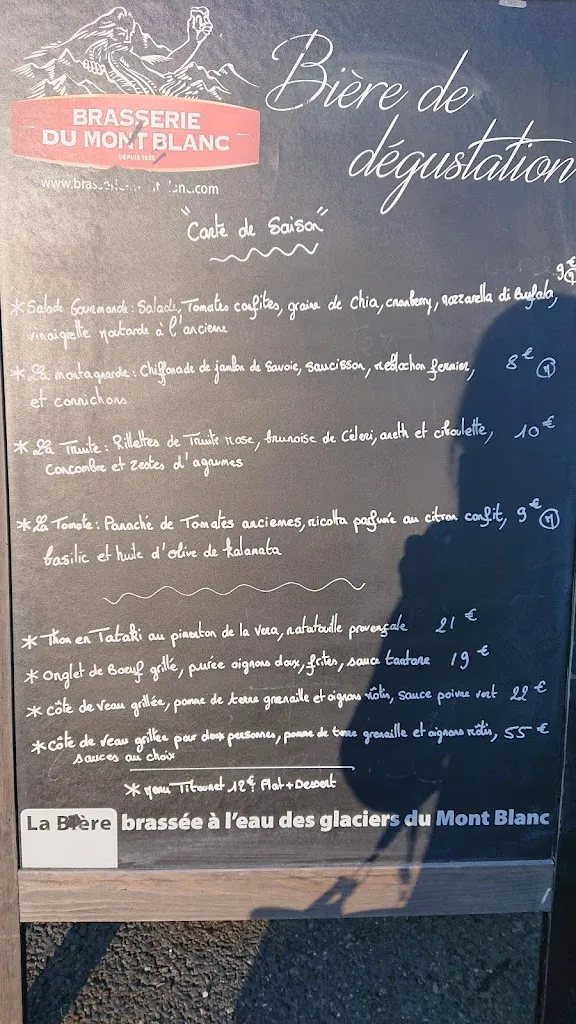 BRASSERIE
DU MONT BLANC
DEPUIS 1820
Bière de
dégustation
"Carte de Saison"
9€
* Salade Gourmande: Salade, Tomates confites, graine de Chia, cranberry, mozzarella di Bufala,
vinaigrette moutarde à l'ancienne
* La montagnarde: Chiffonade de jambon de Savoie, saucisson, reblochon fermier, 8€
et cornichons
* La Truite: Rillettes de Truite rose, brunoise de Céleri, aneth et ciboulette, 10€
Concombre et zestes d'agrumes
* La Tomate: Panaché de Tomates anciennes, ricotta parfumée au citron confit, 9€
basilic et huile d'olive de Kalamata
* Thon en Tataki au pimenton de la vera, ratatouille provençale 21€
* Onglet de Boeuf grillé, purée oignons doux, frites, sauce tartare 19€
* côte de veau grillée, pomme de terre grenaille et oignons rôtis, sauce poivre vert 22€
* côte de veau grillée pour deux personnes, pomme de terre grenaille et oignons rôtis, 55€
sauces au choix
* menu Titounet 12€ Plat + Dessert
La Bière brassée à l'eau des glaciers du Mont Blanc